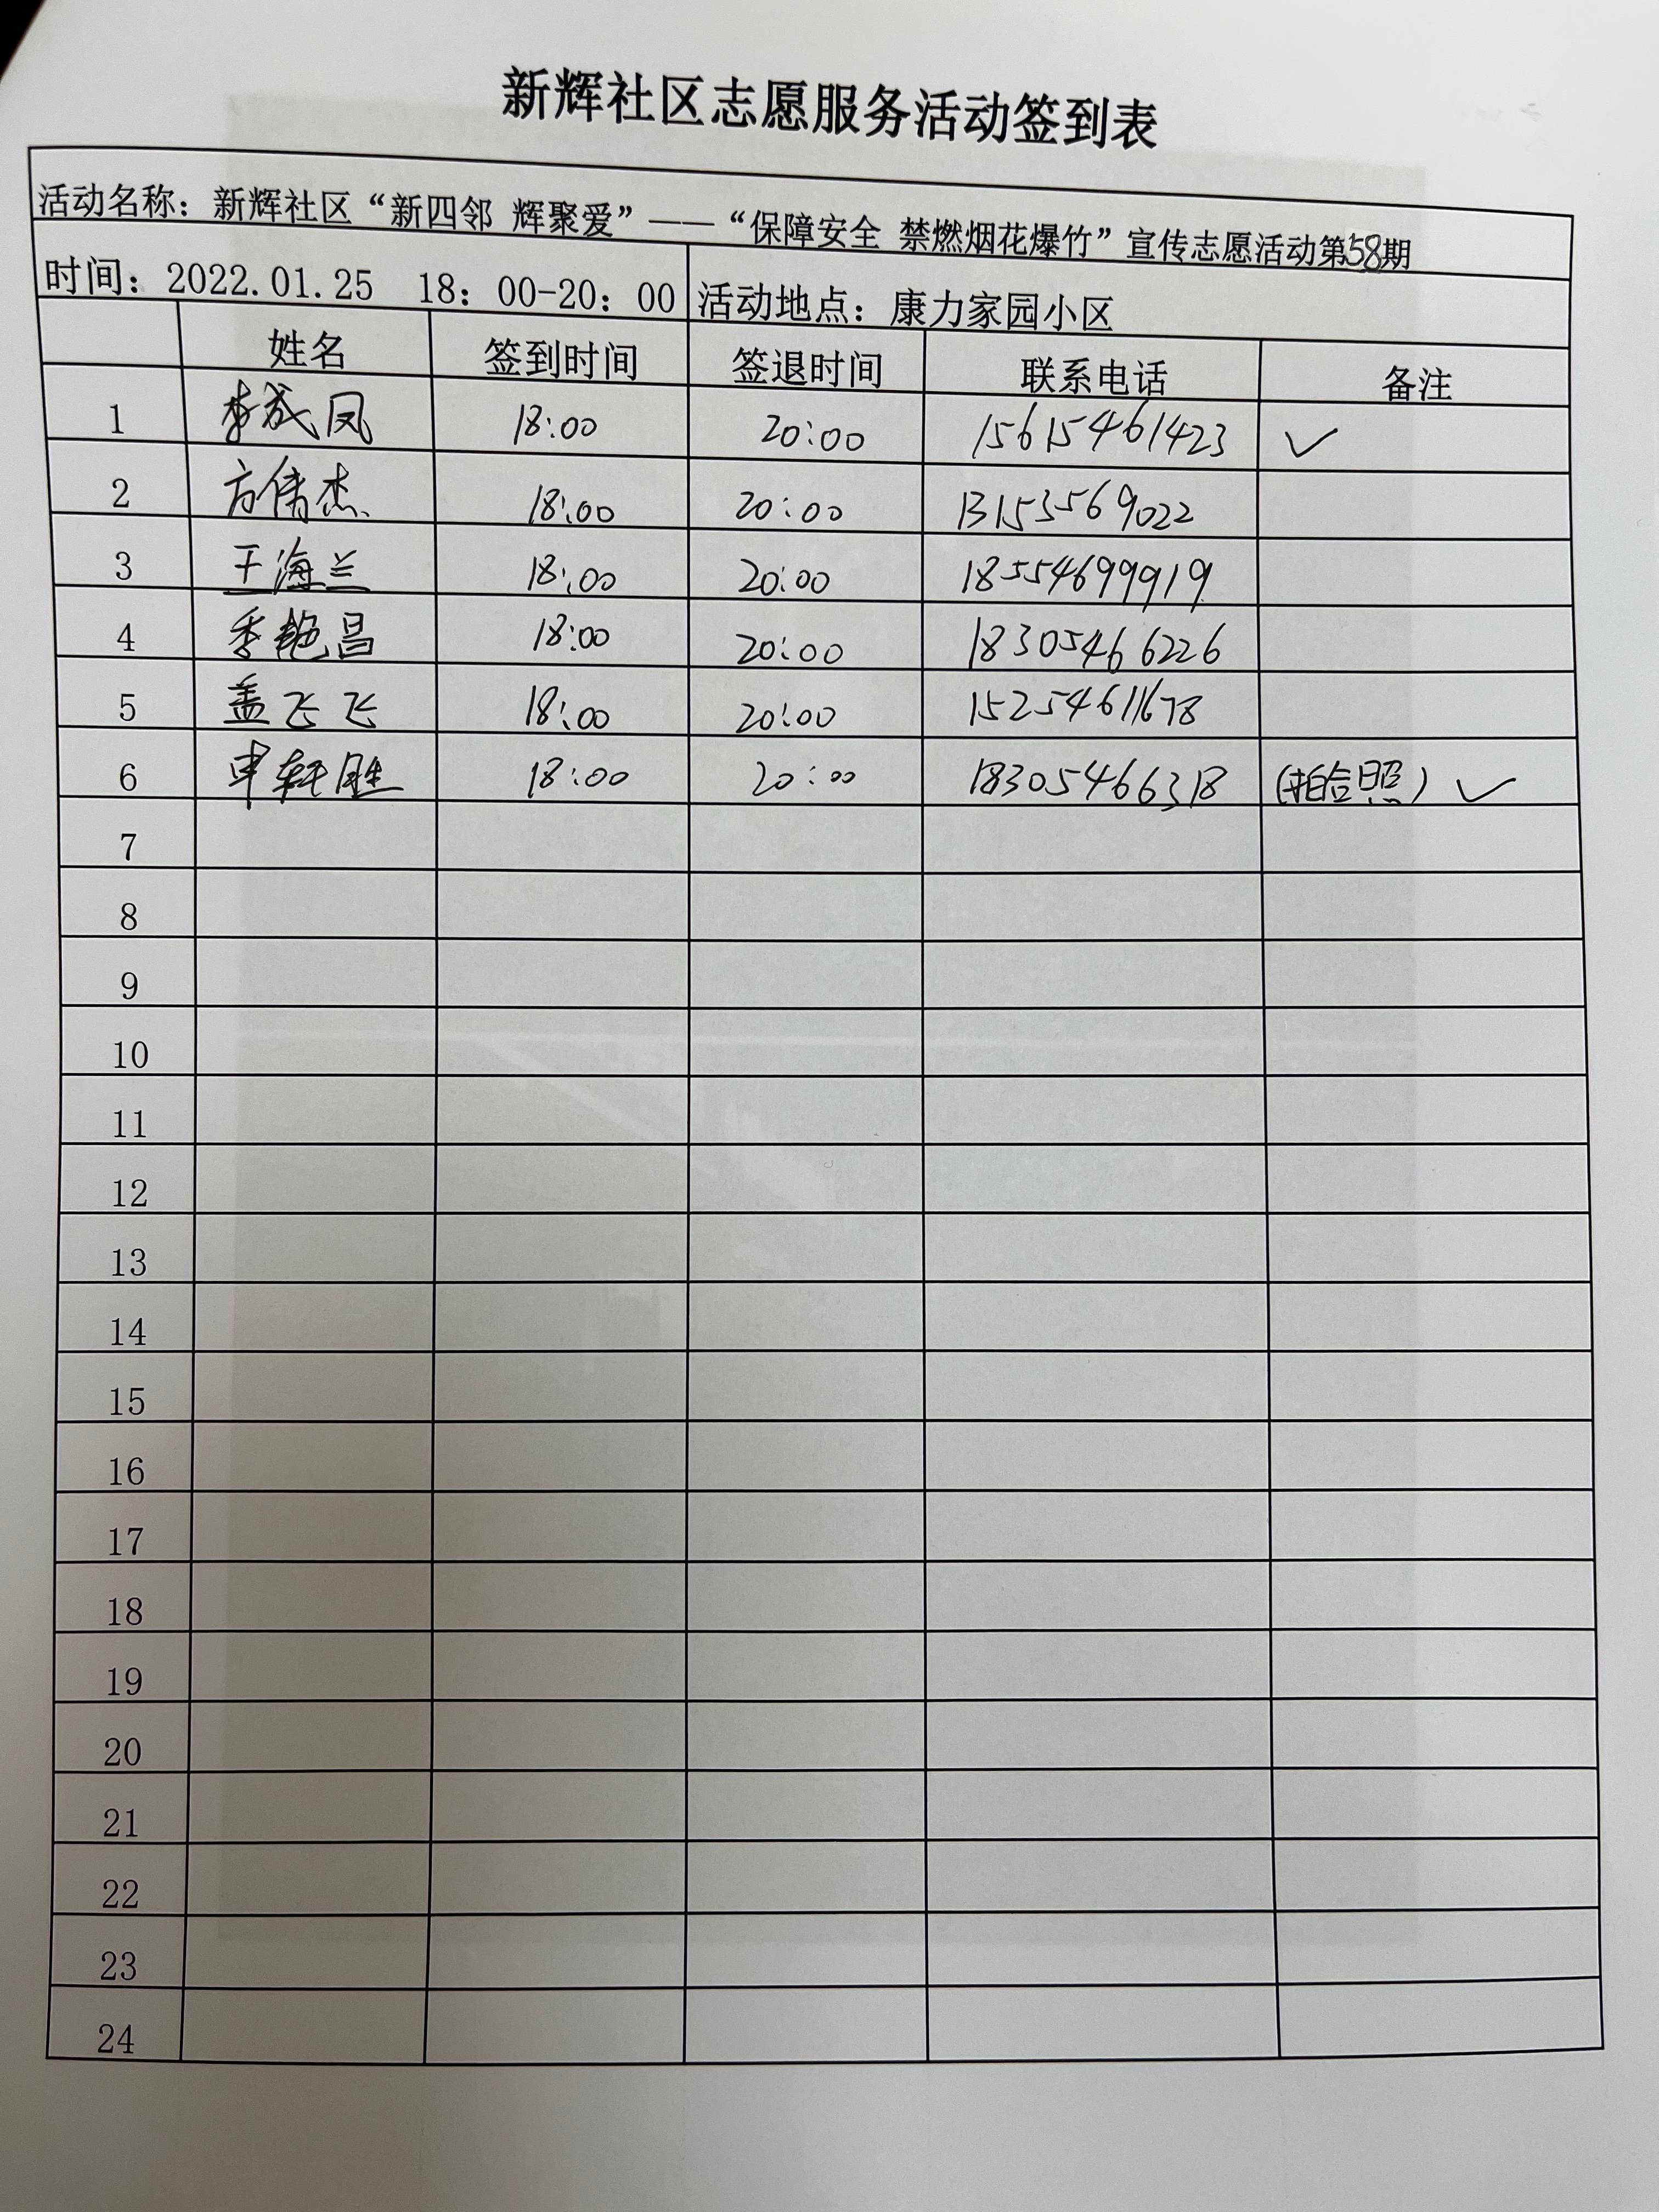 新辉社区志愿服务活动签到表
活动名称：新辉社区“新四邻 辉聚爱”——“保障安全 禁燃烟花爆竹”宣传志愿活动第58期
时间：2022.01.25 18：00-20：00 活动地点：康力家园小区
姓名 签到时间 签退时间 联系电话 备注
1 李成凤 18:00 20:00 15615461423 ✓
2 方倩杰 18:00 20:00 13153569022
3 王海兰 18:00 20:00 18554699919
4 季艳昌 18:00 20:00 18305466226
5 盖飞飞 18:00 20:00 15254611678
6 申轩胜 18:00 20:00 18305466318 (拍合照) ✓
7
8
9
10
11
12
13
14
15
16
17
18
19
20
21
22
23
24